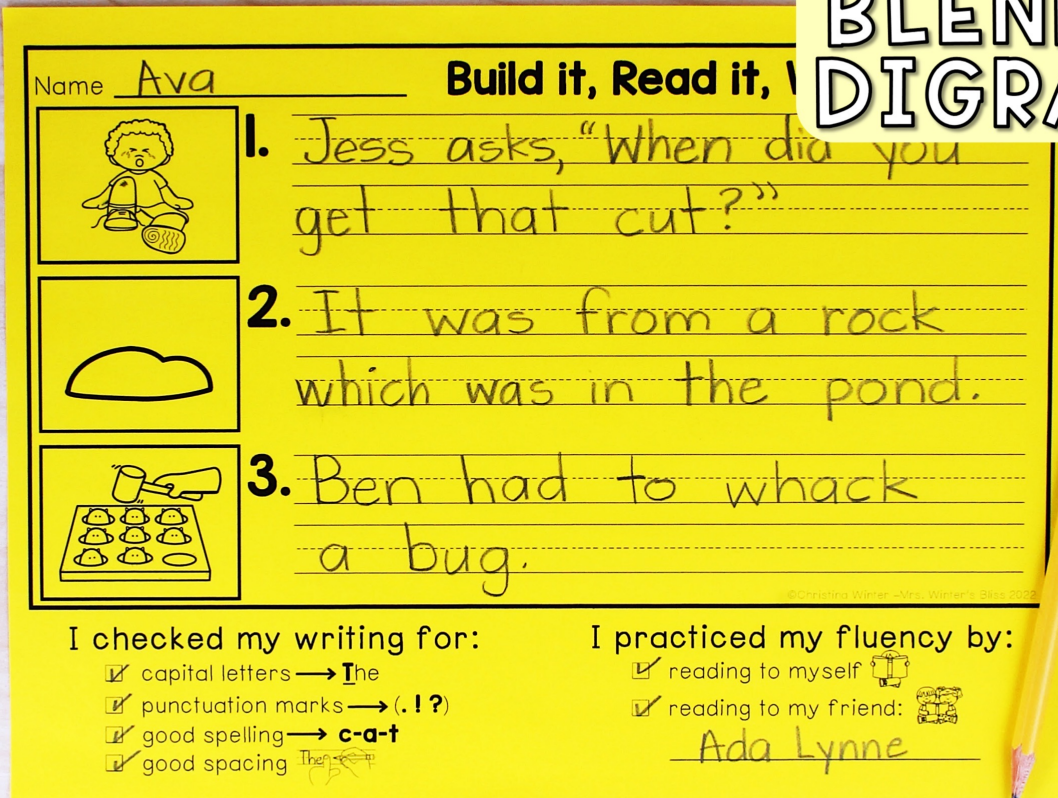 BLEN
DIGRA
Name Ava
Build it, Read it,
1. Jess asks, “When did you
get that cut?”
2. It was from a rock
which was in the pond.
3. Ben had to whack
a bug.
©Christina Winter -Mrs. Winter's Bliss 2022
I checked my writing for:
capital letters → The
punctuation marks → (. ! ?)
good spelling → c-a-t
good spacing
I practiced my fluency by:
reading to myself
reading to my friend:
Ada Lynne